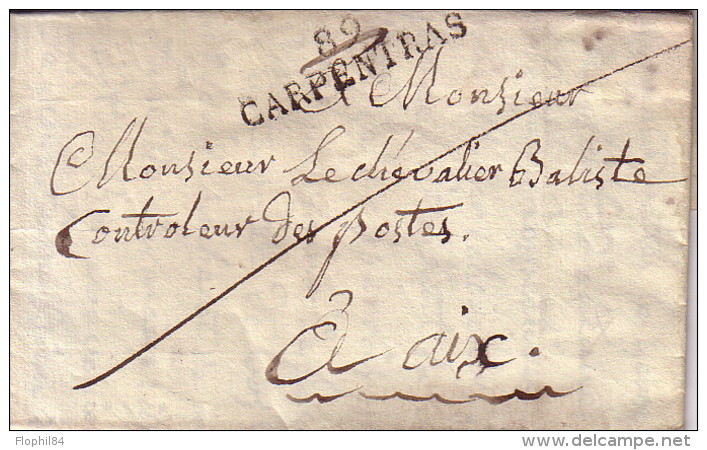 89
CARPENTRAS
A Monsieur
Monsieur Le chevalier Baliste
Controleur des postes.
A aix.
Flophil84
delcampe.net